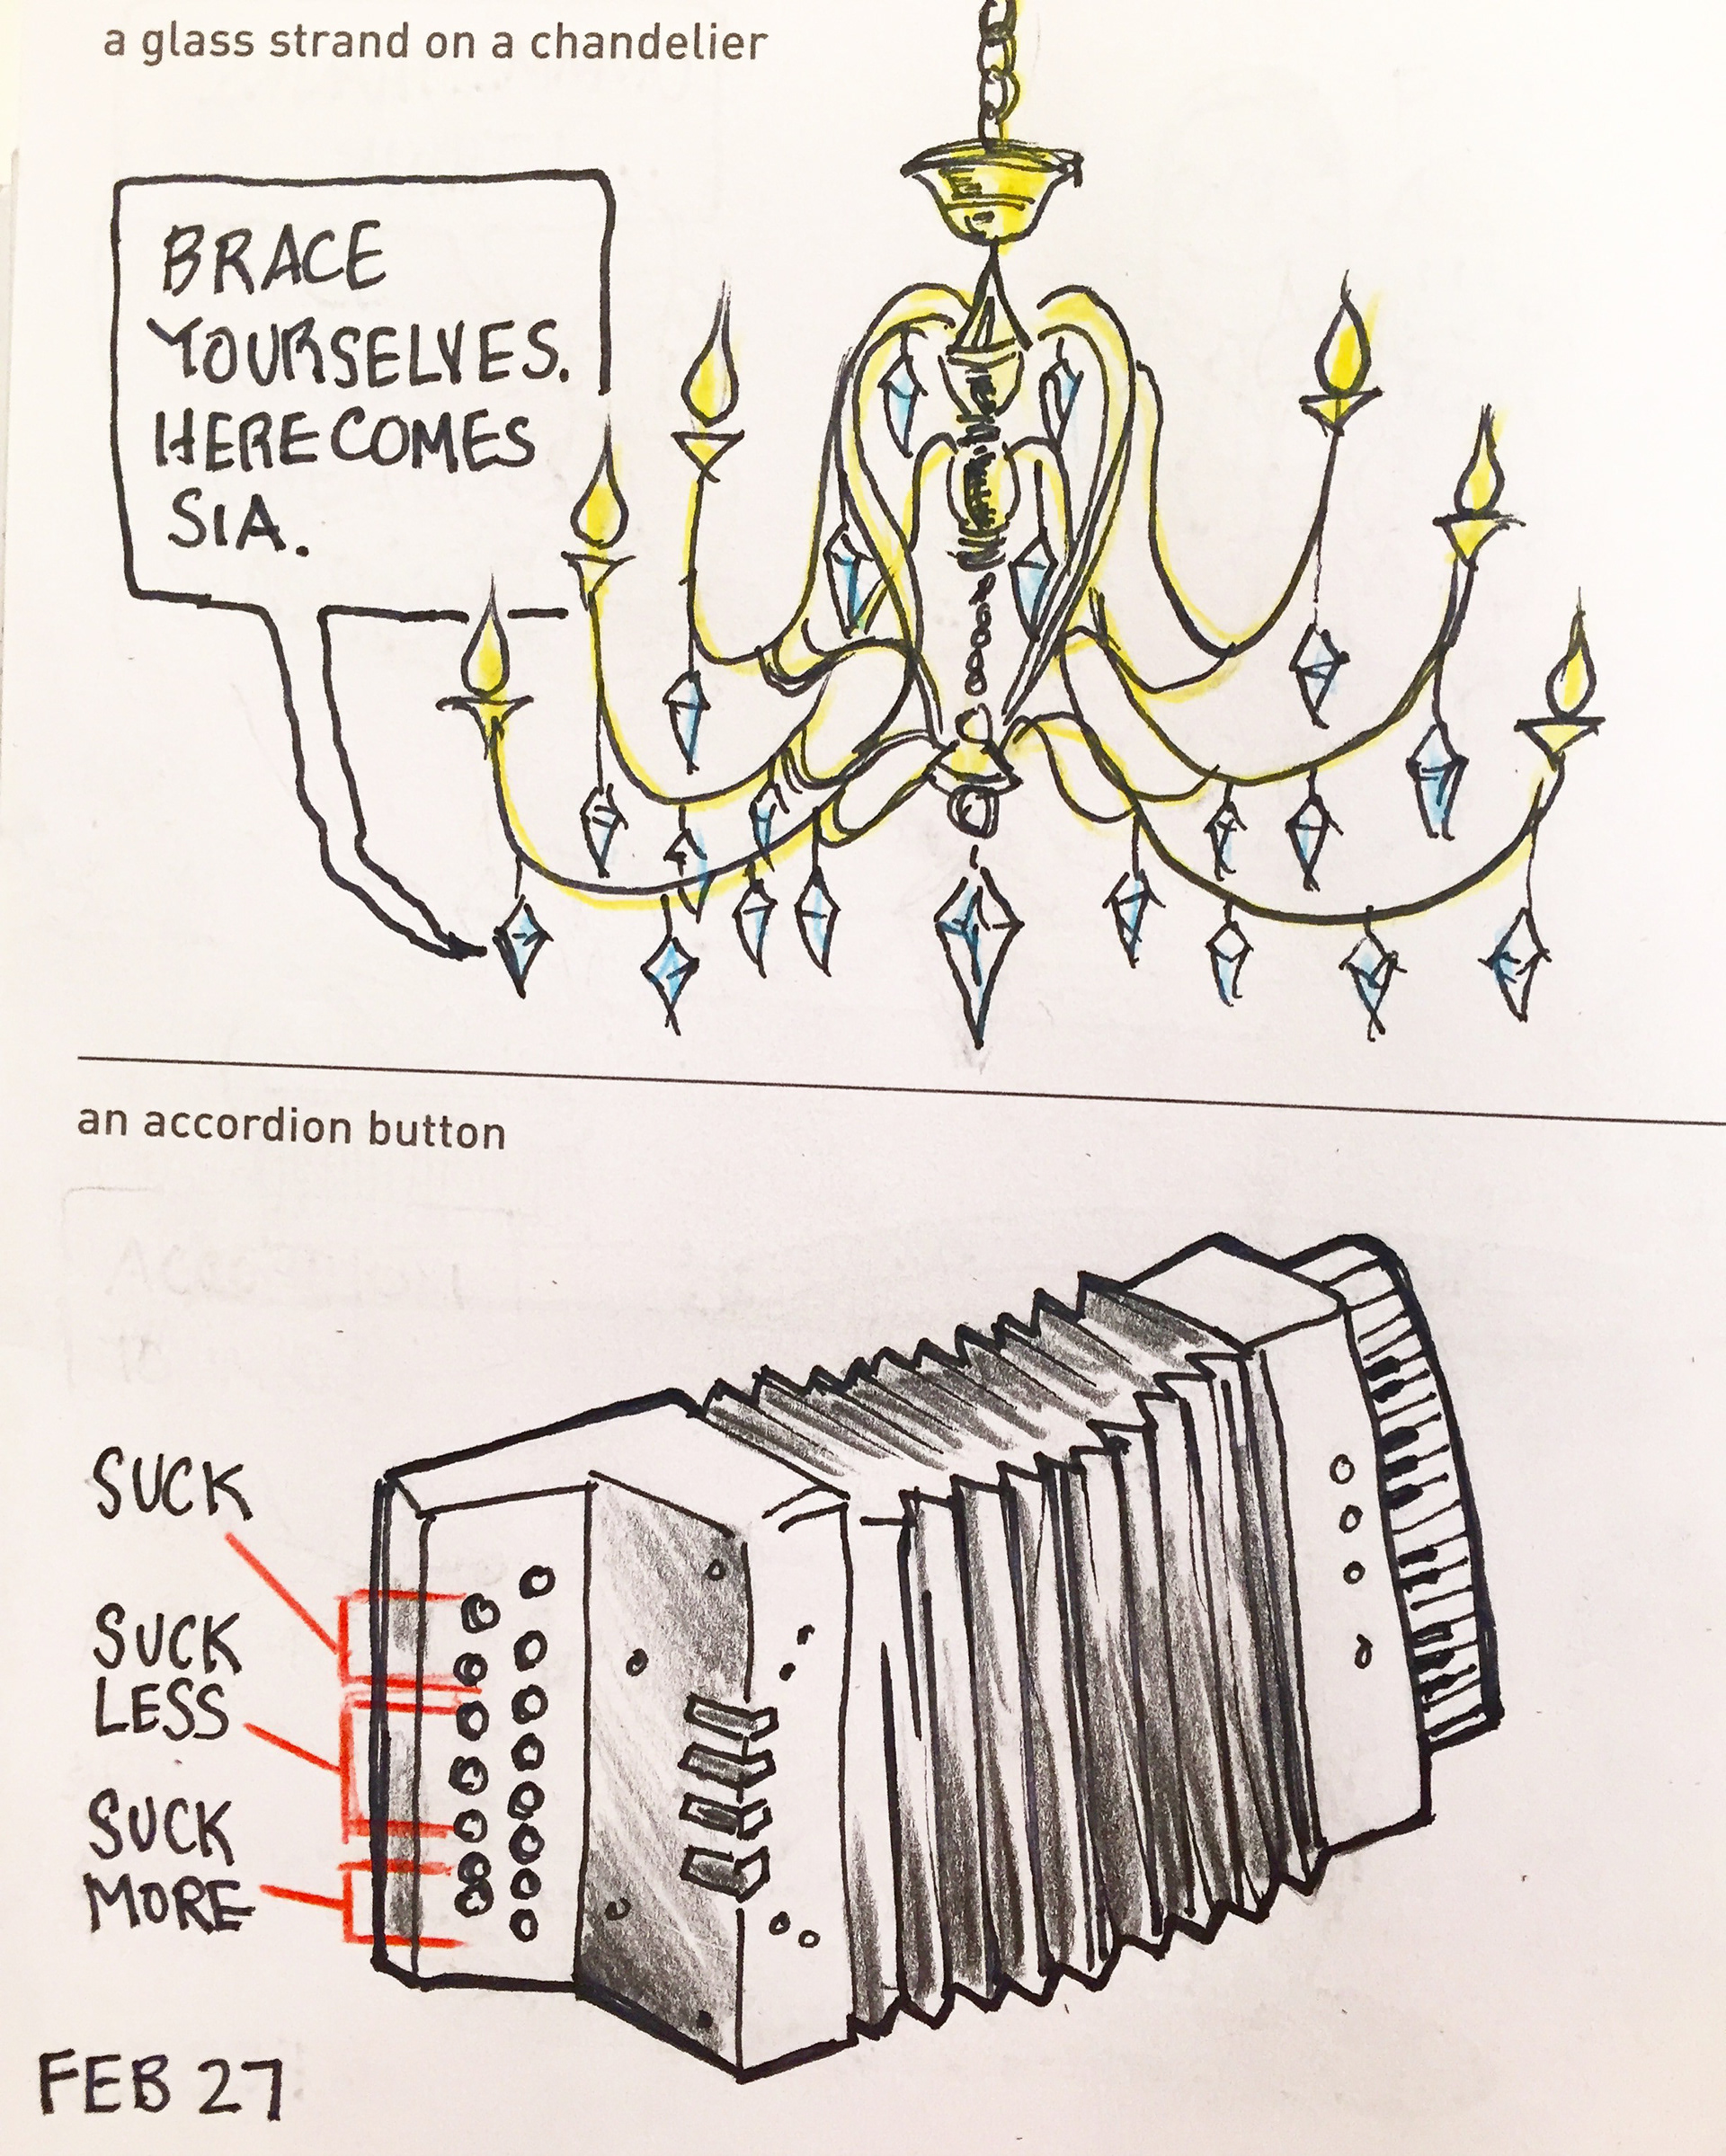 a glass strand on a chandelier
BRACE
YOURSELVES.
HERE COMES
SIA.
an accordion button
SUCK
SUCK
LESS
SUCK
MORE
FEB 27